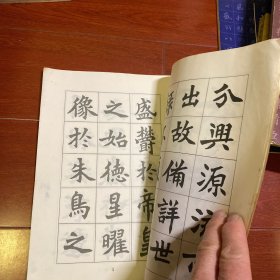 分興源流
出故備詳世
盛欝於帝皇
之始德星曜
像於朱鳥之